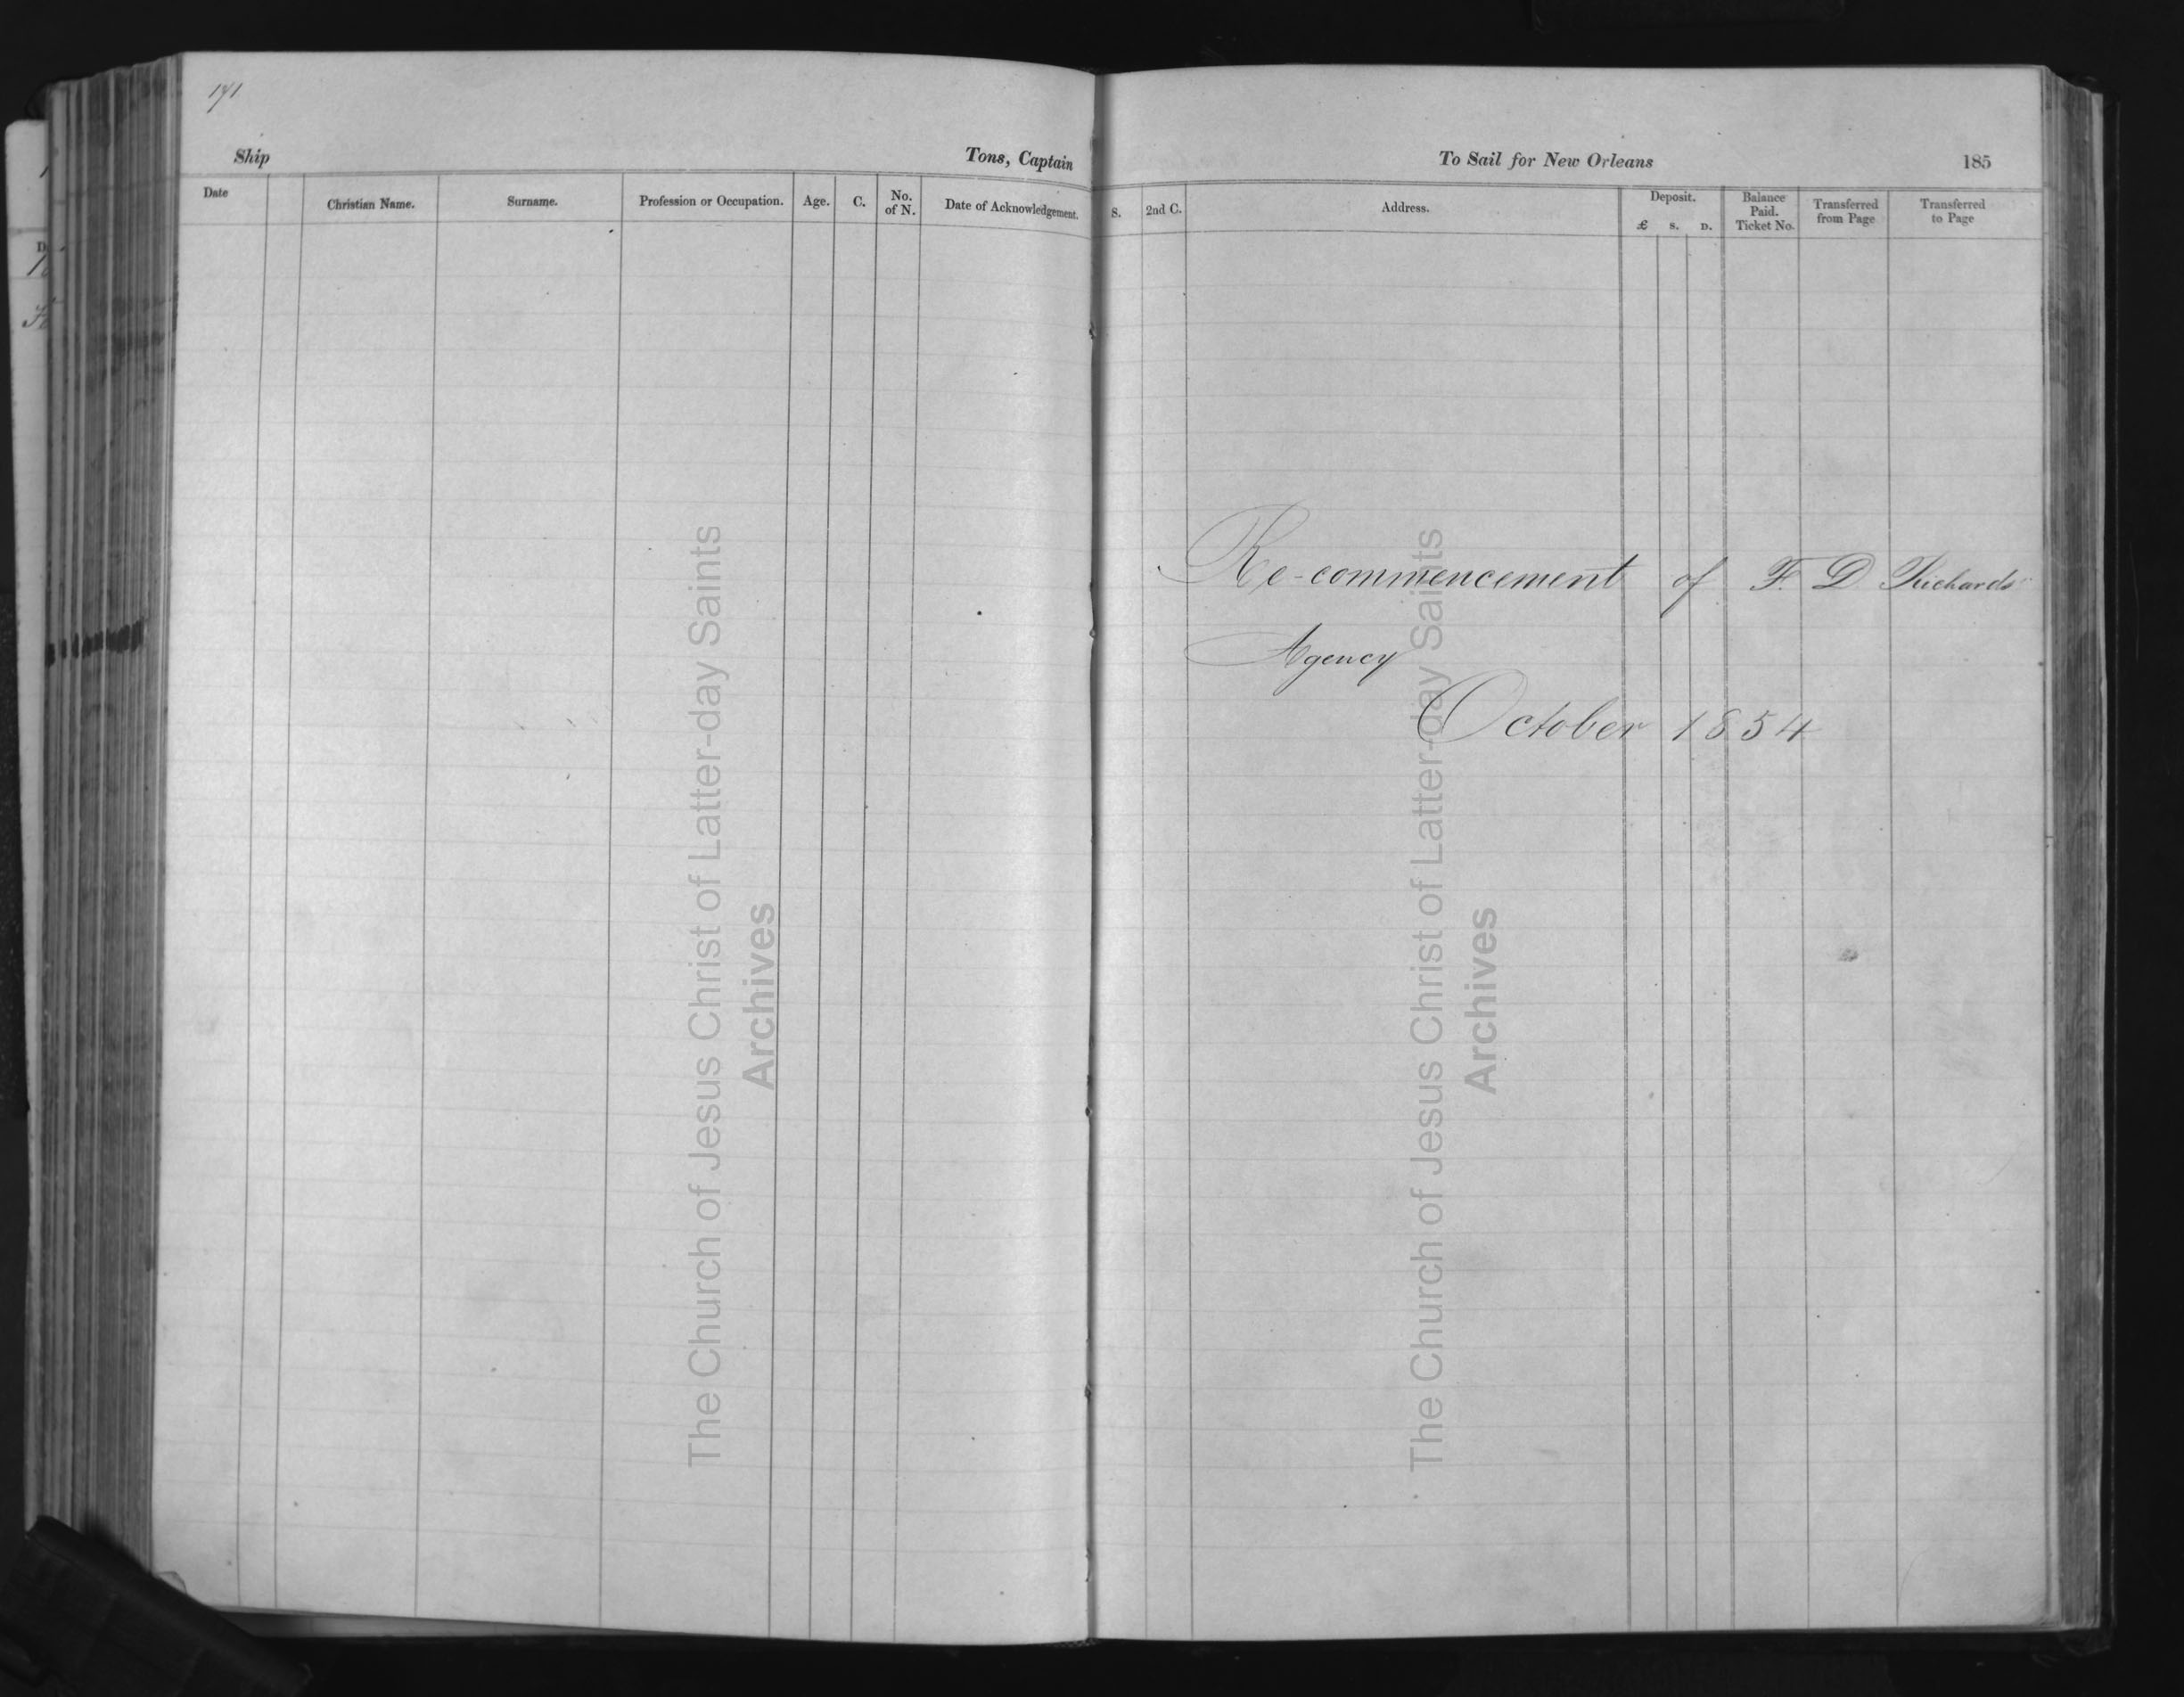 Ship Tons, Captain To Sail for New Orleans 185
Date Christian Name. Surname. Profession or Occupation. Age. C. No. of N. Date of Acknowledgement. S. 2nd C. Address. Deposit. £ s. D. Balance Paid. Ticket No. Transferred from Page Transferred to Page
Re-commencement of F. D Richards'
Agency
October 1854
The Church of Jesus Christ of Latter-day Saints
Archives
The Church of Jesus Christ of Latter-day Saints
Archives